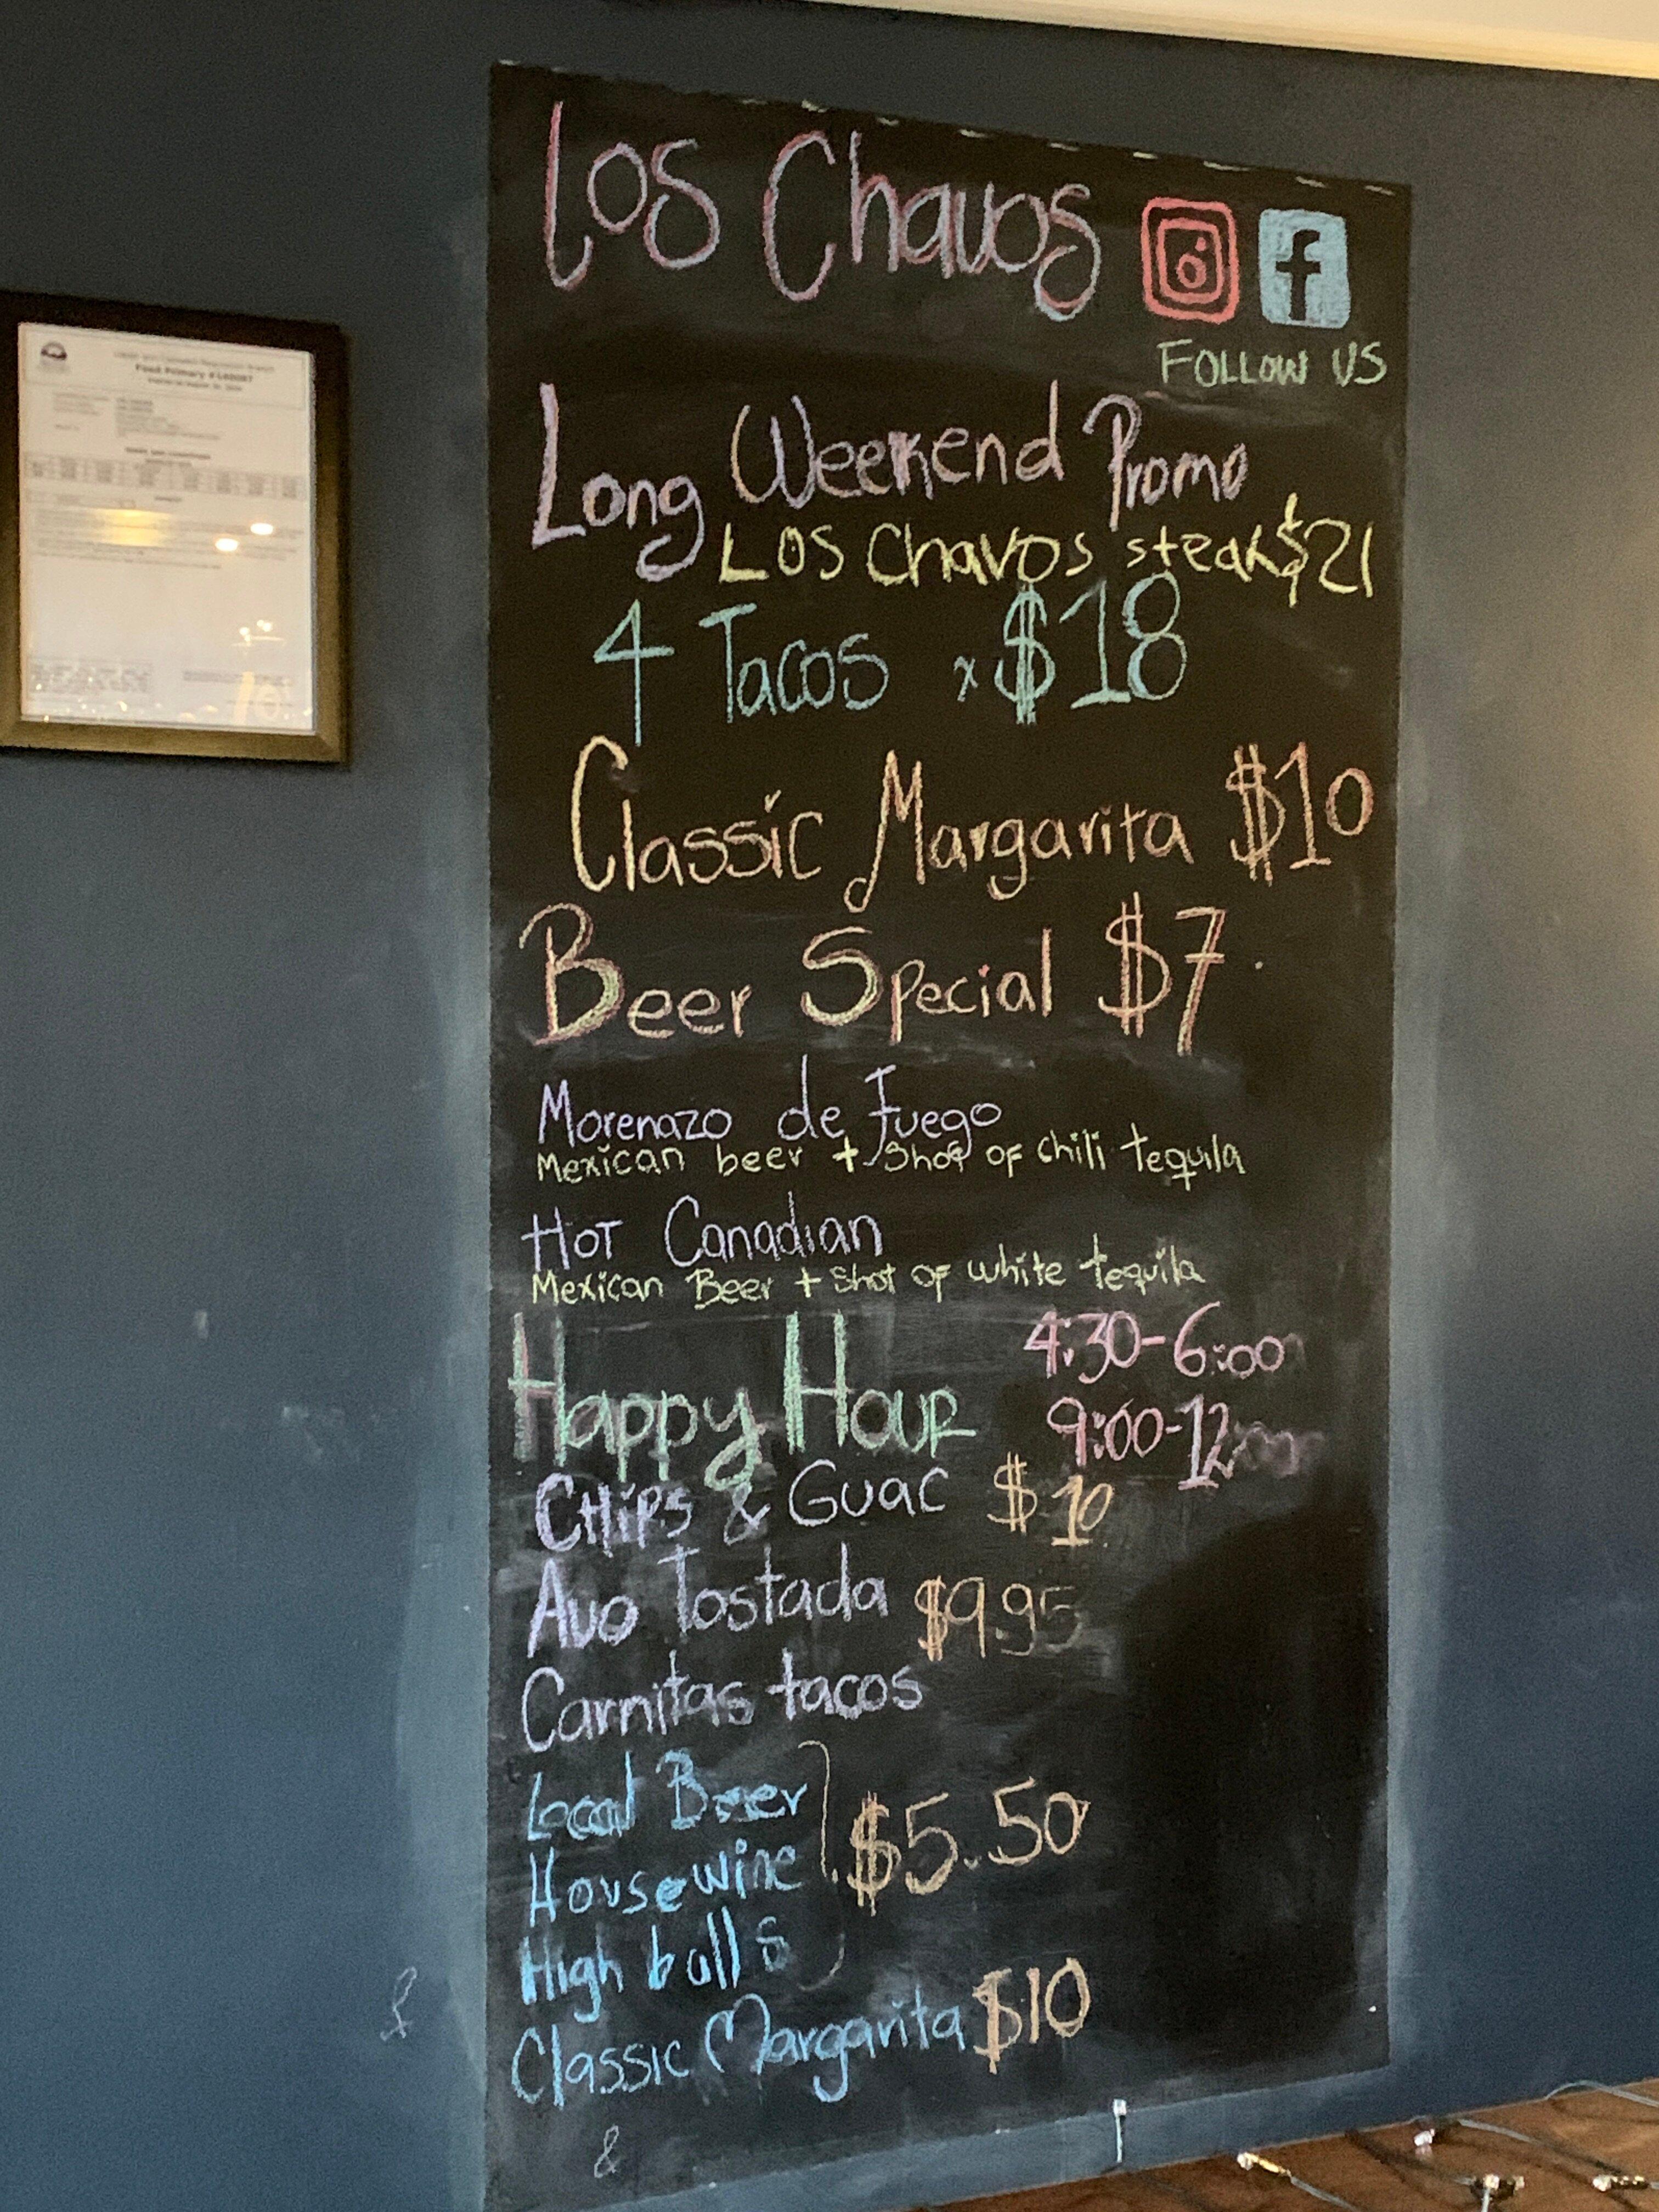 Food Primary #
Los Chavos
f
FOLLOW US
Long Weekend Promo
LOS Chavos steak $21
4 Tacos x $18
Classic Margarita $10
Beer Special $7
Morenazo de Fuego
Mexican beer + shot of chili tequila
HOT Canadian
Mexican Beer + shot of white tequila
Happy Hour
4:30-6:00
9:00-12
CHips & Guac $10
Avo Tostada $9.95
Carnitas tacos
Local Beer
House wine
High balls
$5.50
Classic Margarita $10
&
&